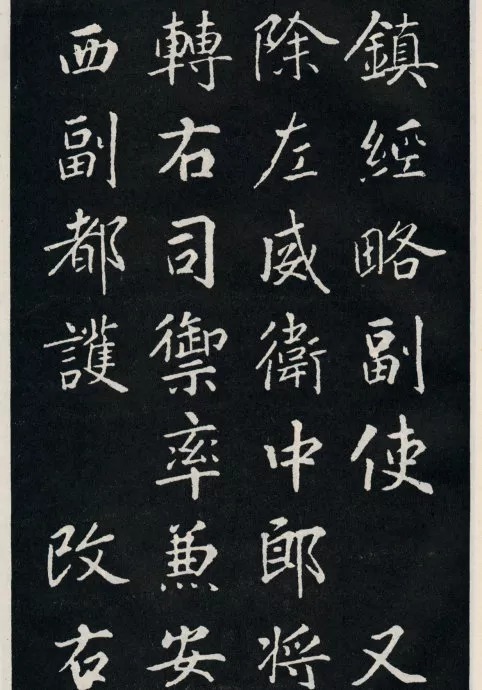 鎮經略副使 又
除左威衛中郎将
轉右司禦率兼安
西副都護 改右